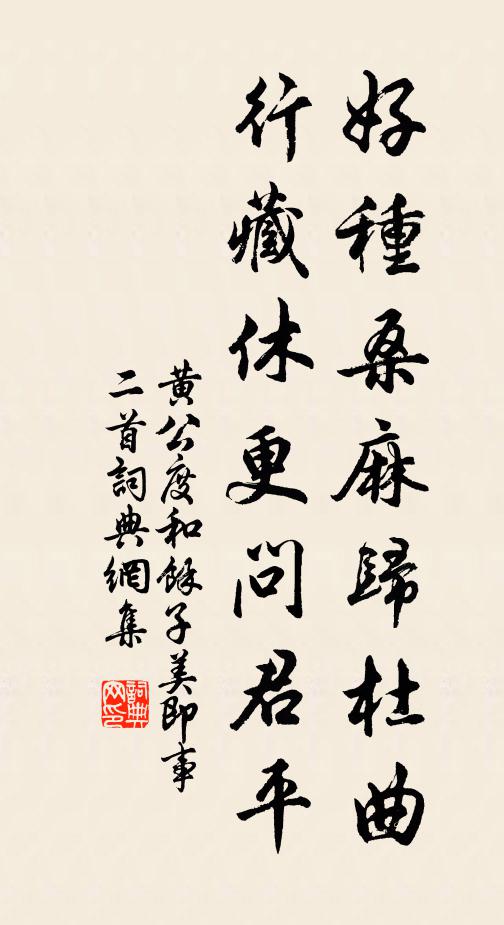 好種桑麻歸杜曲
行藏休更問君平
黃公度和餘子美即事
二首詞典網集
詞典
网印